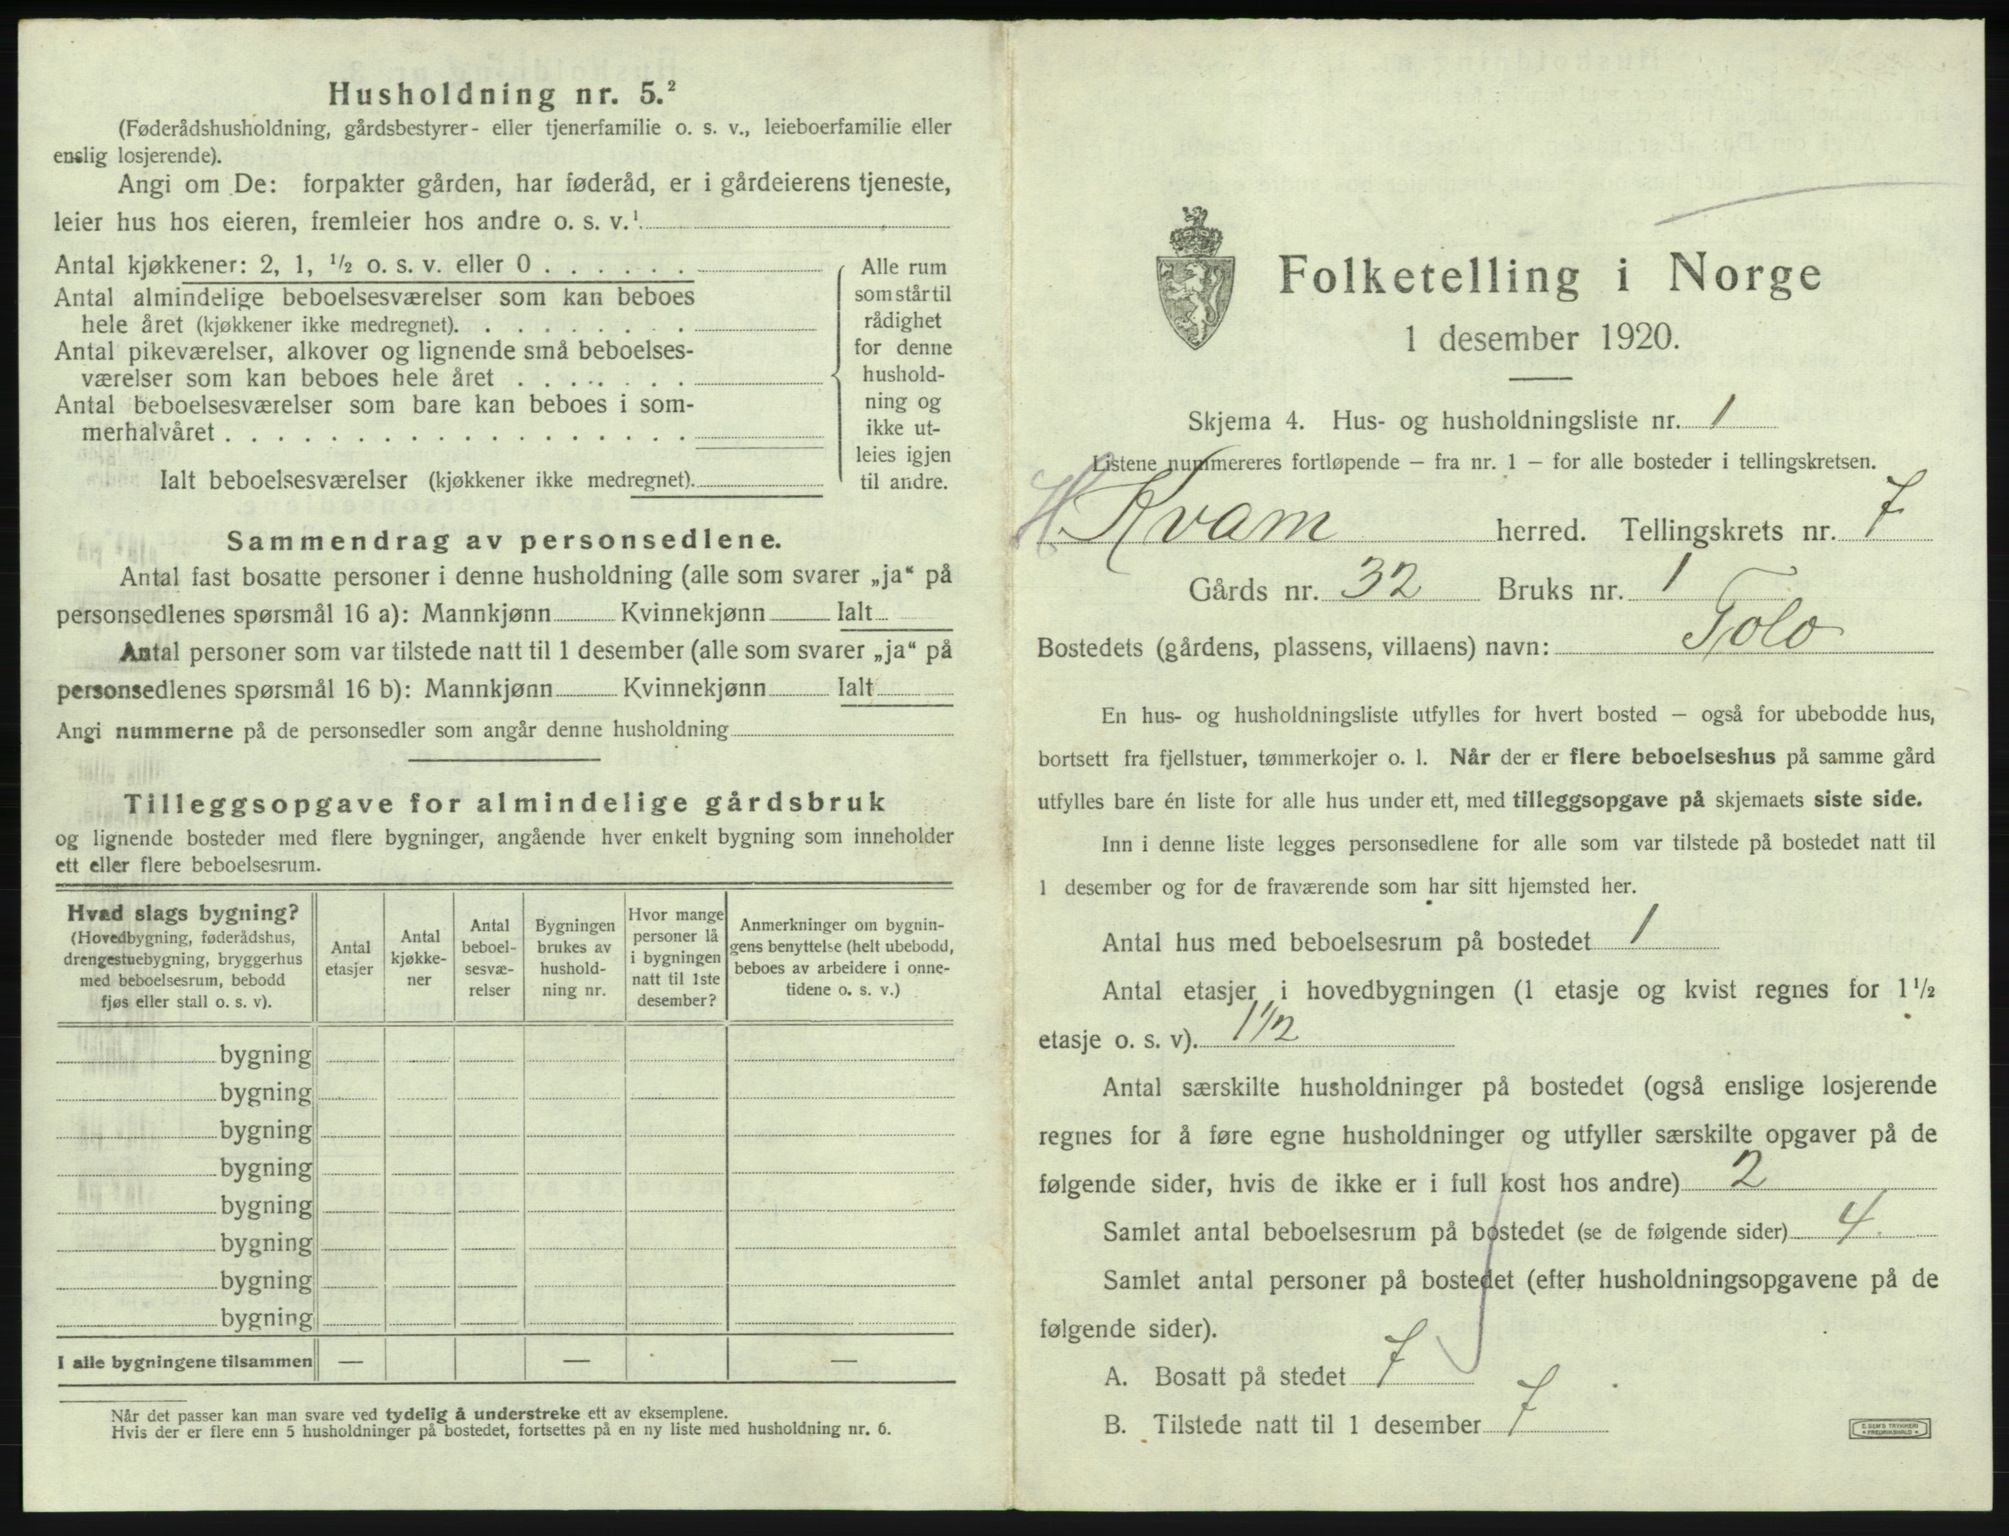 Husholdning nr. 5.²
(Føderådshusholdning, gårdsbestyrer- eller tjenerfamilie o. s. v., leieboerfamilie eller
enslig losjerende).
Angi om De: forpakter gården, har føderåd, er i gårdeierens tjeneste,
leier hus hos eieren, fremleier hos andre o. s. v.¹
Antal kjøkkener: 2, 1, ½ o. s. v. eller 0 . . . . . .
Antal almindelige beboelsesværelser som kan beboes
hele året (kjøkkener ikke medregnet). . . . . . . . .
Antal pikeværelser, alkover og lignende små beboelses-
værelser som kan beboes hele året . . . . . . .
Antal beboelsesværelser som bare kan beboes i som-
merhalvåret . . . . . . . . . . . . . . . . . .
Ialt beboelsesværelser (kjøkkener ikke medregnet).
Alle rum
som står til
rådighet
for denne
hushold-
ning og
ikke ut-
leies igjen
til andre.
Sammendrag av personsedlene.
Antal fast bosatte personer i denne husholdning (alle som svarer „ja“ på
personsedlenes spørsmål 16 a): Mannkjønn Kvinnekjønn Ialt
Antal personer som var tilstede natt til 1 desember (alle som svarer „ja“ på
personsedlenes spørsmål 16 b): Mannkjønn Kvinnekjønn Ialt
Angi nummerne på de personsedler som angår denne husholdning
Tilleggsopgave for almindelige gårdsbruk
og lignende bosteder med flere bygninger, angående hver enkelt bygning som inneholder
ett eller flere beboelsesrum.
Hvad slags bygning?
(Hovedbygning, føderådshus,
drengestuebygning, bryggerhus
med beboelsesrum, bebodd
fjøs eller stall o. s. v).
Antal
etasjer
Antal
kjøkke-
ner
Antal
beboel-
sesvæ-
relser
Bygningen
brukes av
hushold-
ning nr.
Hvor mange
personer lå
i bygningen
natt til 1ste
desember?
Anmerkninger om bygnin-
gens benyttelse (helt ubebodd,
beboes av arbeidere i onne-
tidene o. s. v.)
bygning
bygning
bygning
bygning
bygning
bygning
bygning
bygning
I alle bygningene tilsammen — — —
Når det passer kan man svare ved tydelig å understreke ett av eksemplene.
Hvis der er flere enn 5 husholdninger på bostedet, fortsettes på en ny liste med husholdning nr. 6.
Folketelling i Norge
1 desember 1920.
Skjema 4. Hus- og husholdningsliste nr. 1
Listene nummereres fortløpende – fra nr. 1 – for alle bosteder i tellingskretsen.
H. Kvam herred. Tellingskrets nr. 7
Gårds nr. 32 Bruks nr. 1
Bostedets (gårdens, plassens, villaens) navn: Tolo
En hus- og husholdningsliste utfylles for hvert bosted – også for ubebodde hus,
bortsett fra fjellstuer, tømmerkojer o. l. Når der er flere beboelseshus på samme gård
utfylles bare én liste for alle hus under ett, med tilleggsopgave på skjemaets siste side.
Inn i denne liste legges personsedlene for alle som var tilstede på bostedet natt til
1 desember og for de fraværende som har sitt hjemsted her.
Antal hus med beboelsesrum på bostedet 1
Antal etasjer i hovedbygningen (1 etasje og kvist regnes for 1½
etasje o. s. v). 1½
Antal særskilte husholdninger på bostedet (også enslige losjerende
regnes for å føre egne husholdninger og utfyller særskilte opgaver på de
følgende sider, hvis de ikke er i full kost hos andre) 2
Samlet antal beboelsesrum på bostedet (se de følgende sider) 4
Samlet antal personer på bostedet (efter husholdningsopgavene på de
følgende sider).
A. Bosatt på stedet 7
B. Tilstede natt til 1 desember 7
E. SEM'S TRYKKERI
FREDRIKSHALD